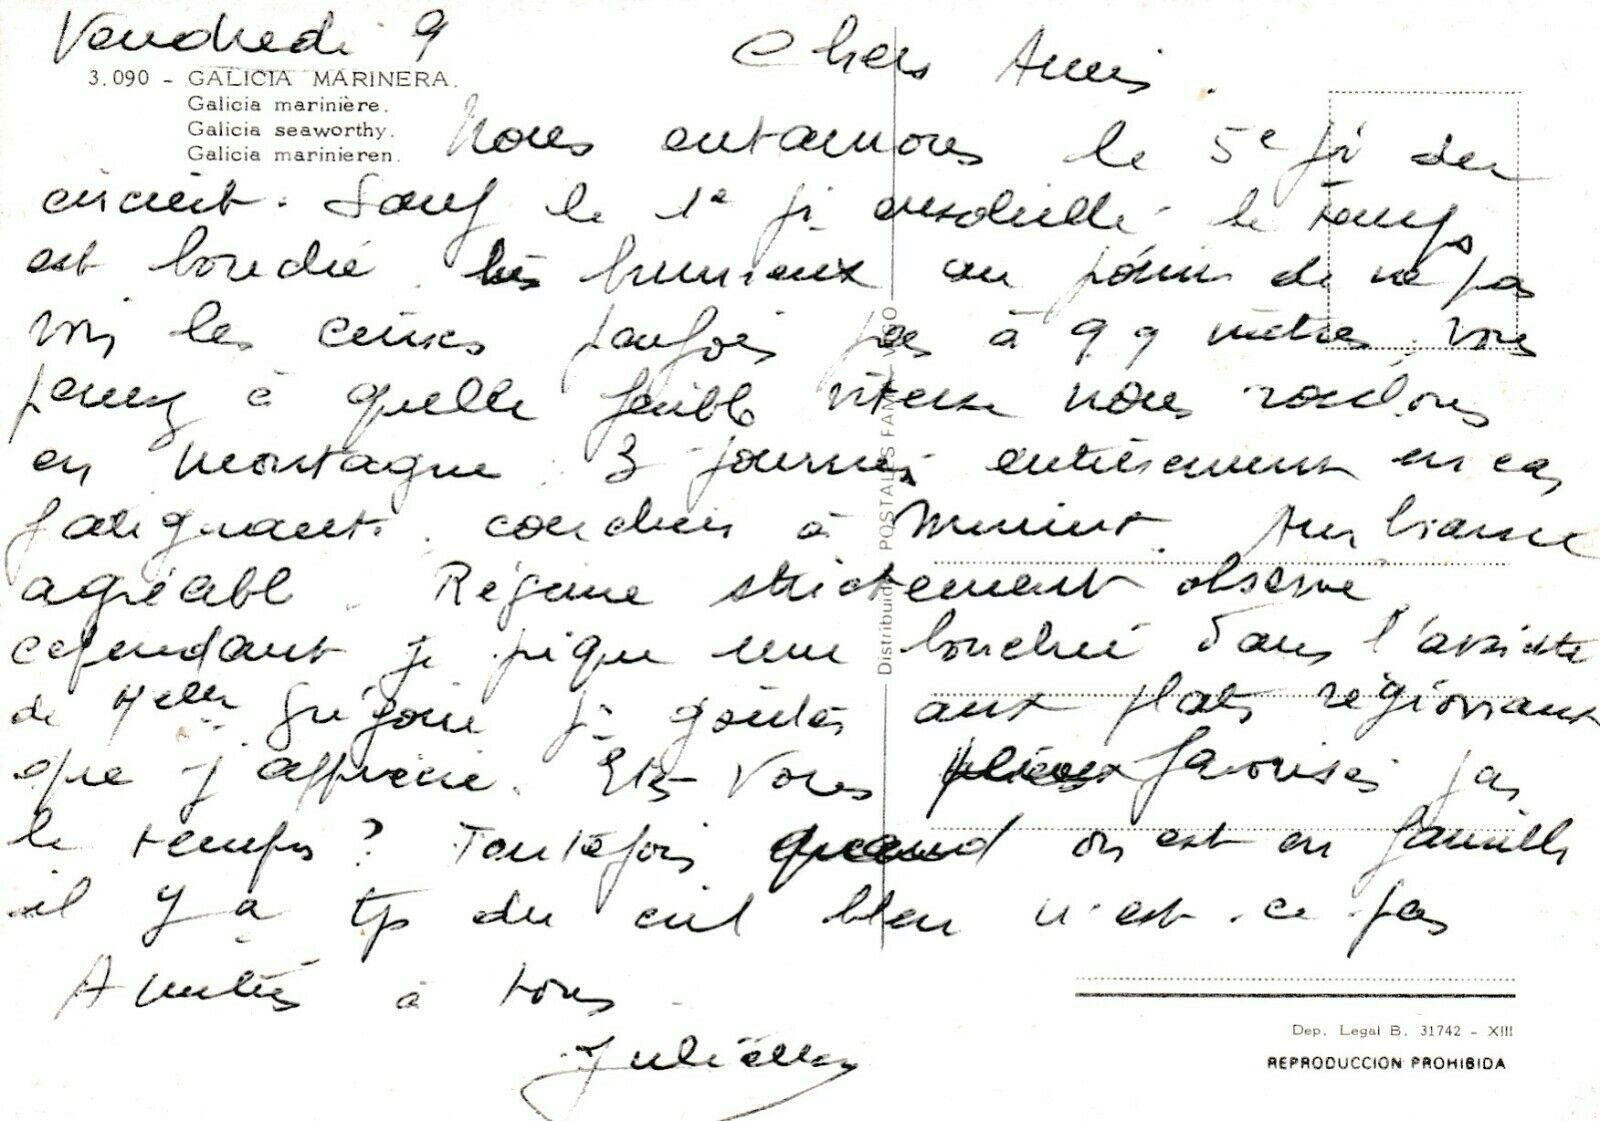 Vendredi 9
Chers Amis.
3.090 - GALICIA MARINERA.
Galicia marinière.
Galicia seaworthy.
Galicia marinieren.
Nous entamons le 5e ji du
circuit. Sauf le 1e ji ensoleillé le temps
est bouché très brumeux au point de ne pas
voir les cimes parfois pas à 99 mètres, vous
pensez à quelle faible vitesse nous roulons
en montagne. 3 journées entièrement en cas
fatigants. couchers à Minuit. Ambiance
agréable. Régime strictement observé
cependant je pique une bouchée dans l'assiette
de Melle Grégoire je goûte aux plats régionaux
que j'apprécie. Etes Vous favorisés par
le temps ? Toutefois quand on est en famille
il y a tjs du ciel bleu n'est-ce pas
Amitiés à tous.
Distribuido POSTALES FAMA - VIGO
Dep. Legal B. 31742 - XIII
REPRODUCCION PROHIBIDA